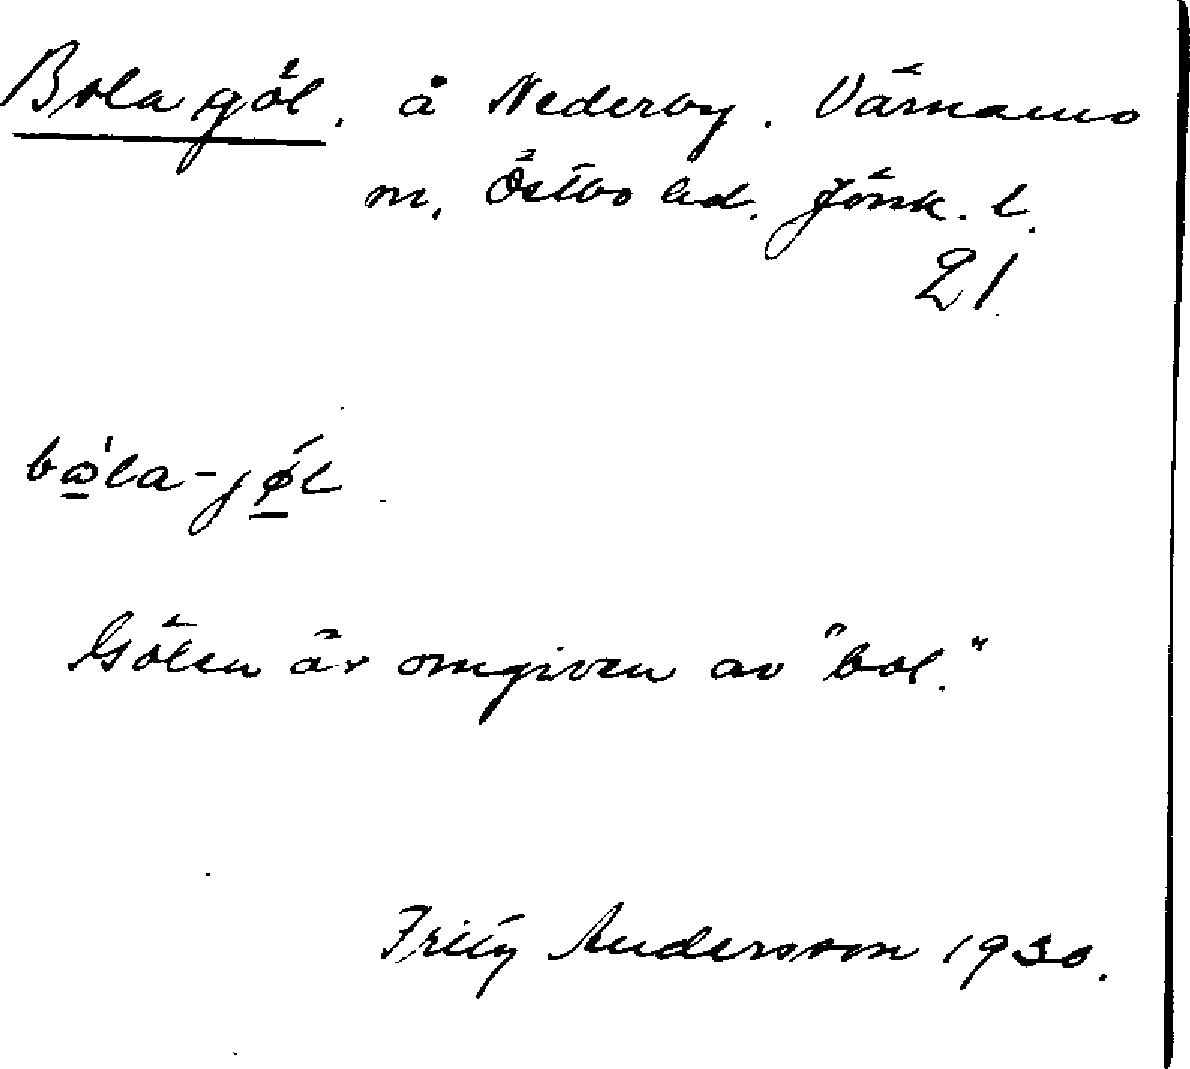 Bolagöl. å Nederby. Värnamo
m. Östbo hd. Jönk. l.
21.
bὼ̱la-jǿ̱l
Gölen är omgiven av "bol."
Fritz Andersson 1930.